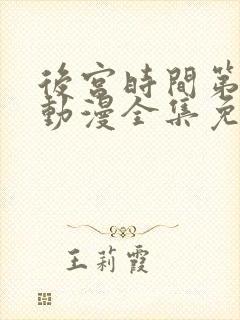 後宮時間第
動漫全集免
王莉霞